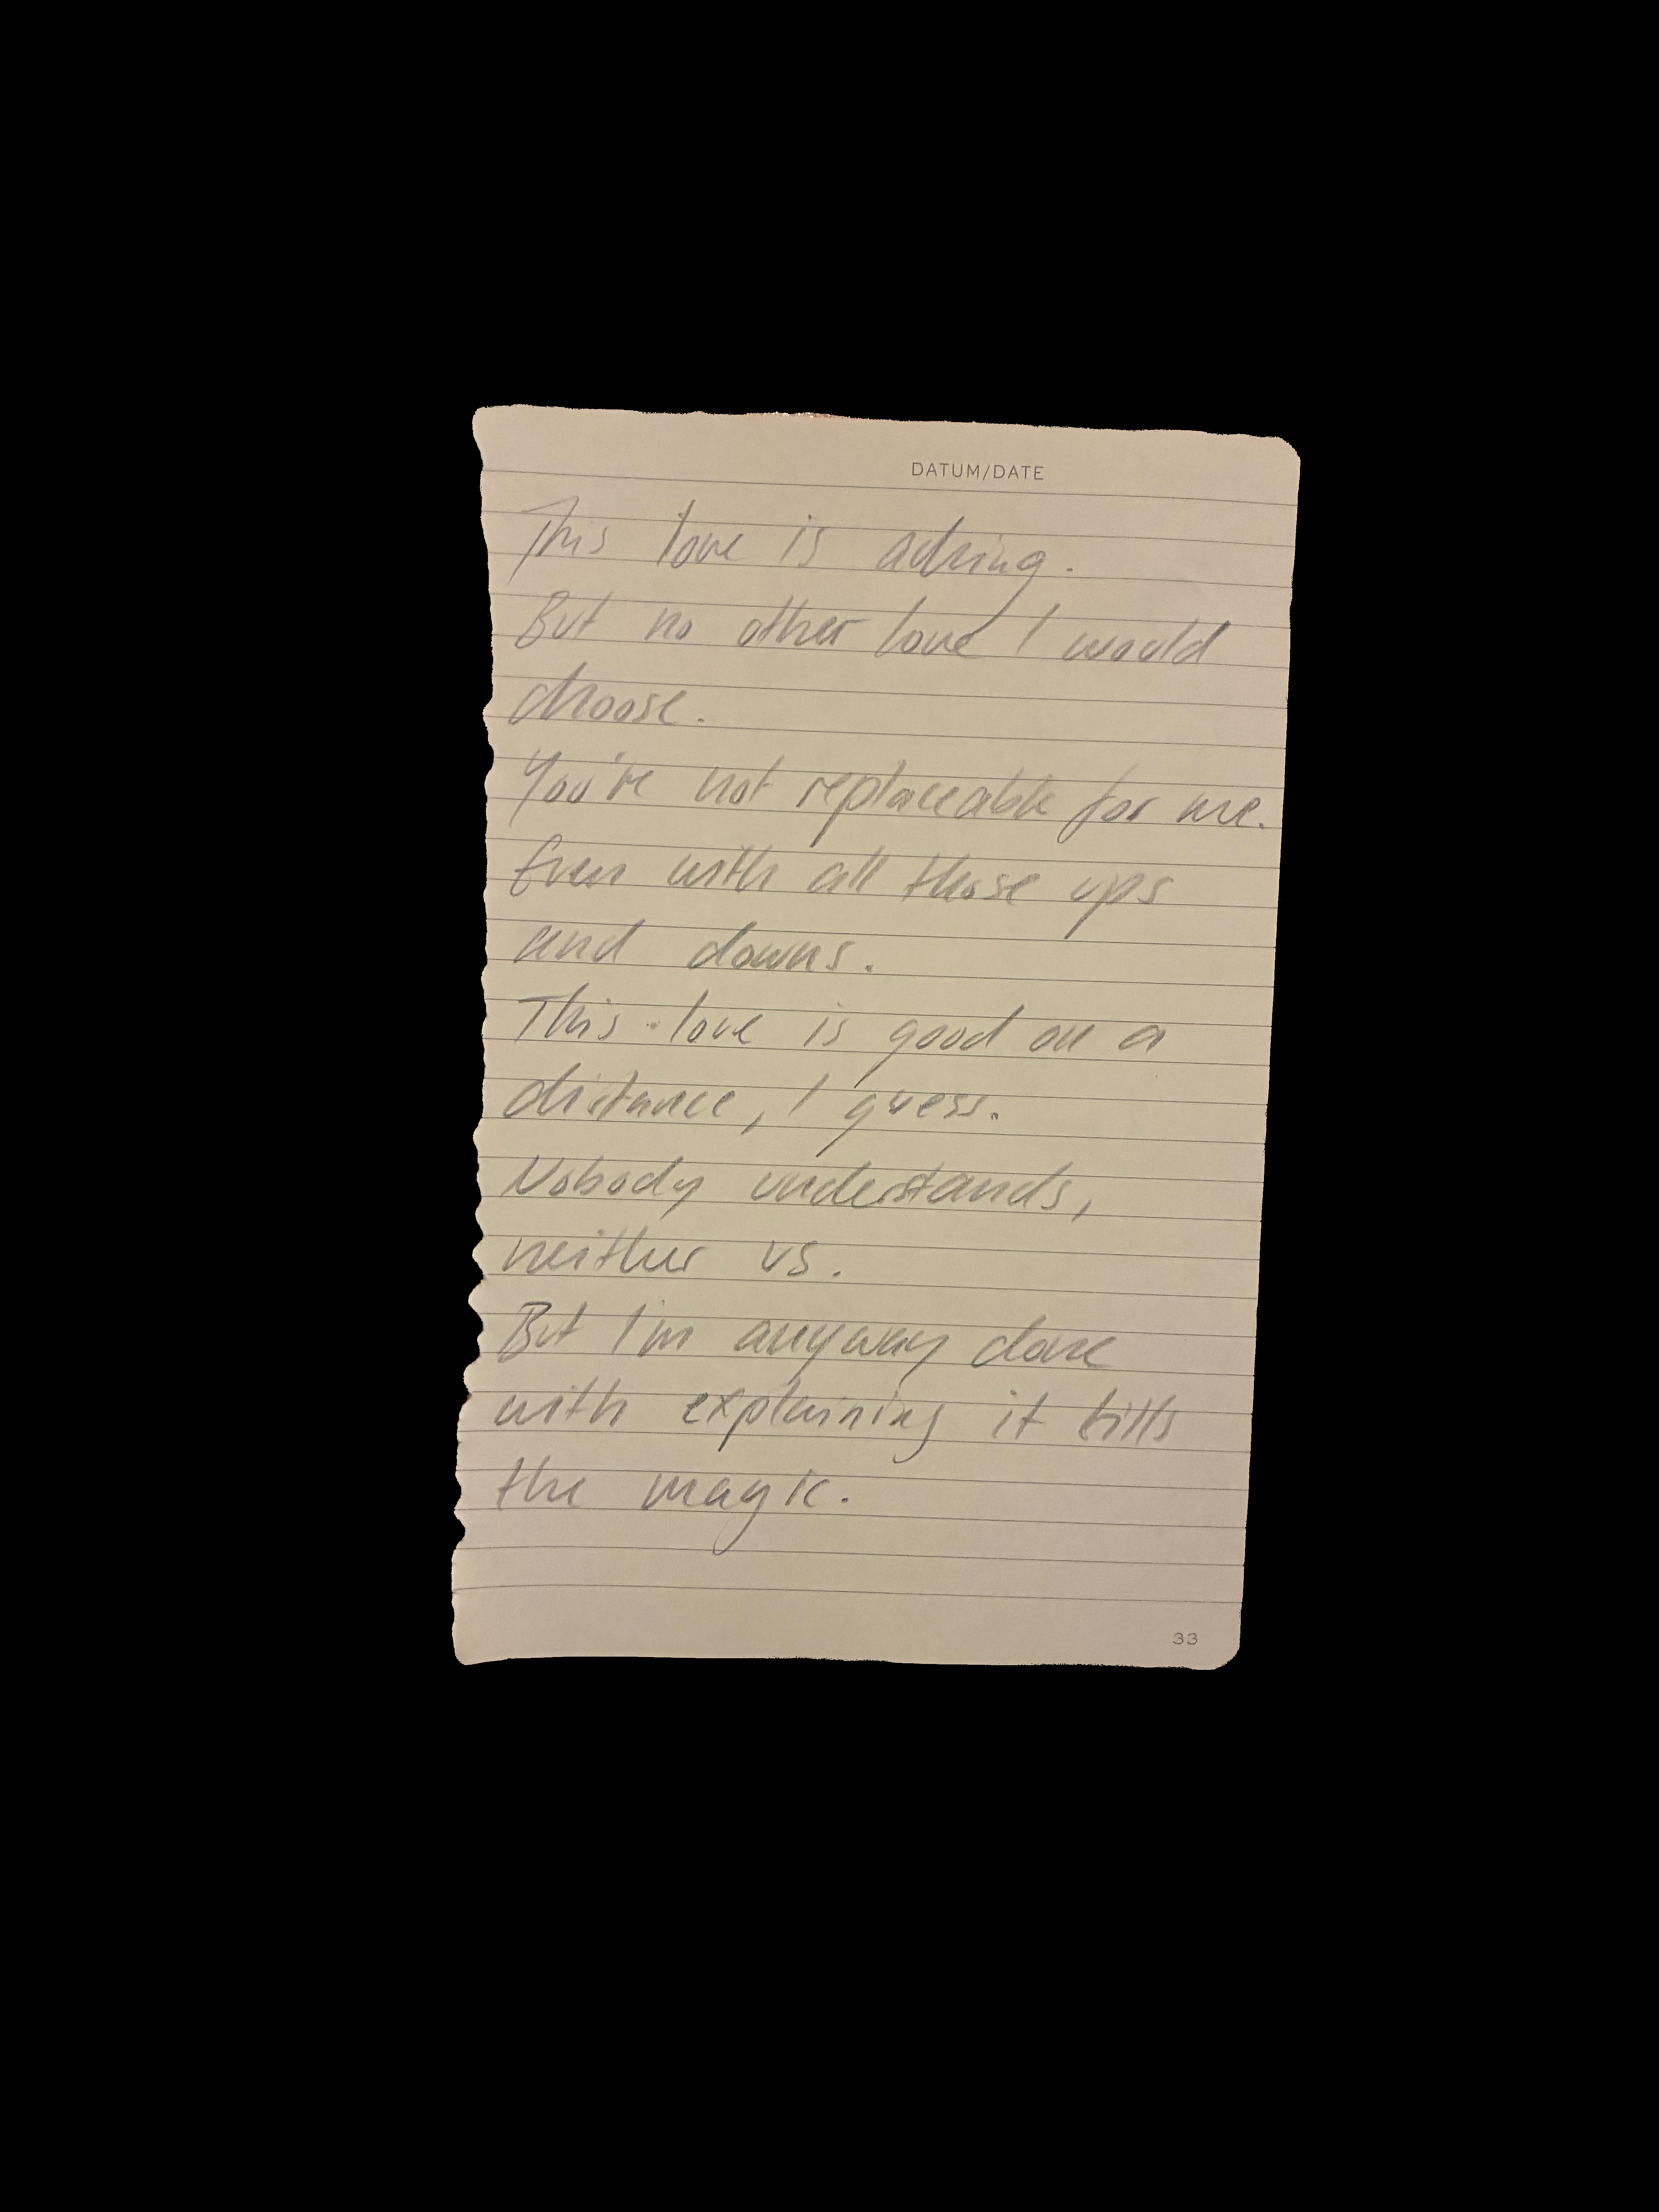 DATUM/DATE
This love is aching.
But no other love I would
choose.
You're not replaceable for me.
Even with all those ups
and downs.
This love is good on a
distance, I guess.
Nobody understands,
neither us.
But I'm anyway done
with explaining it kills
the magic.
33